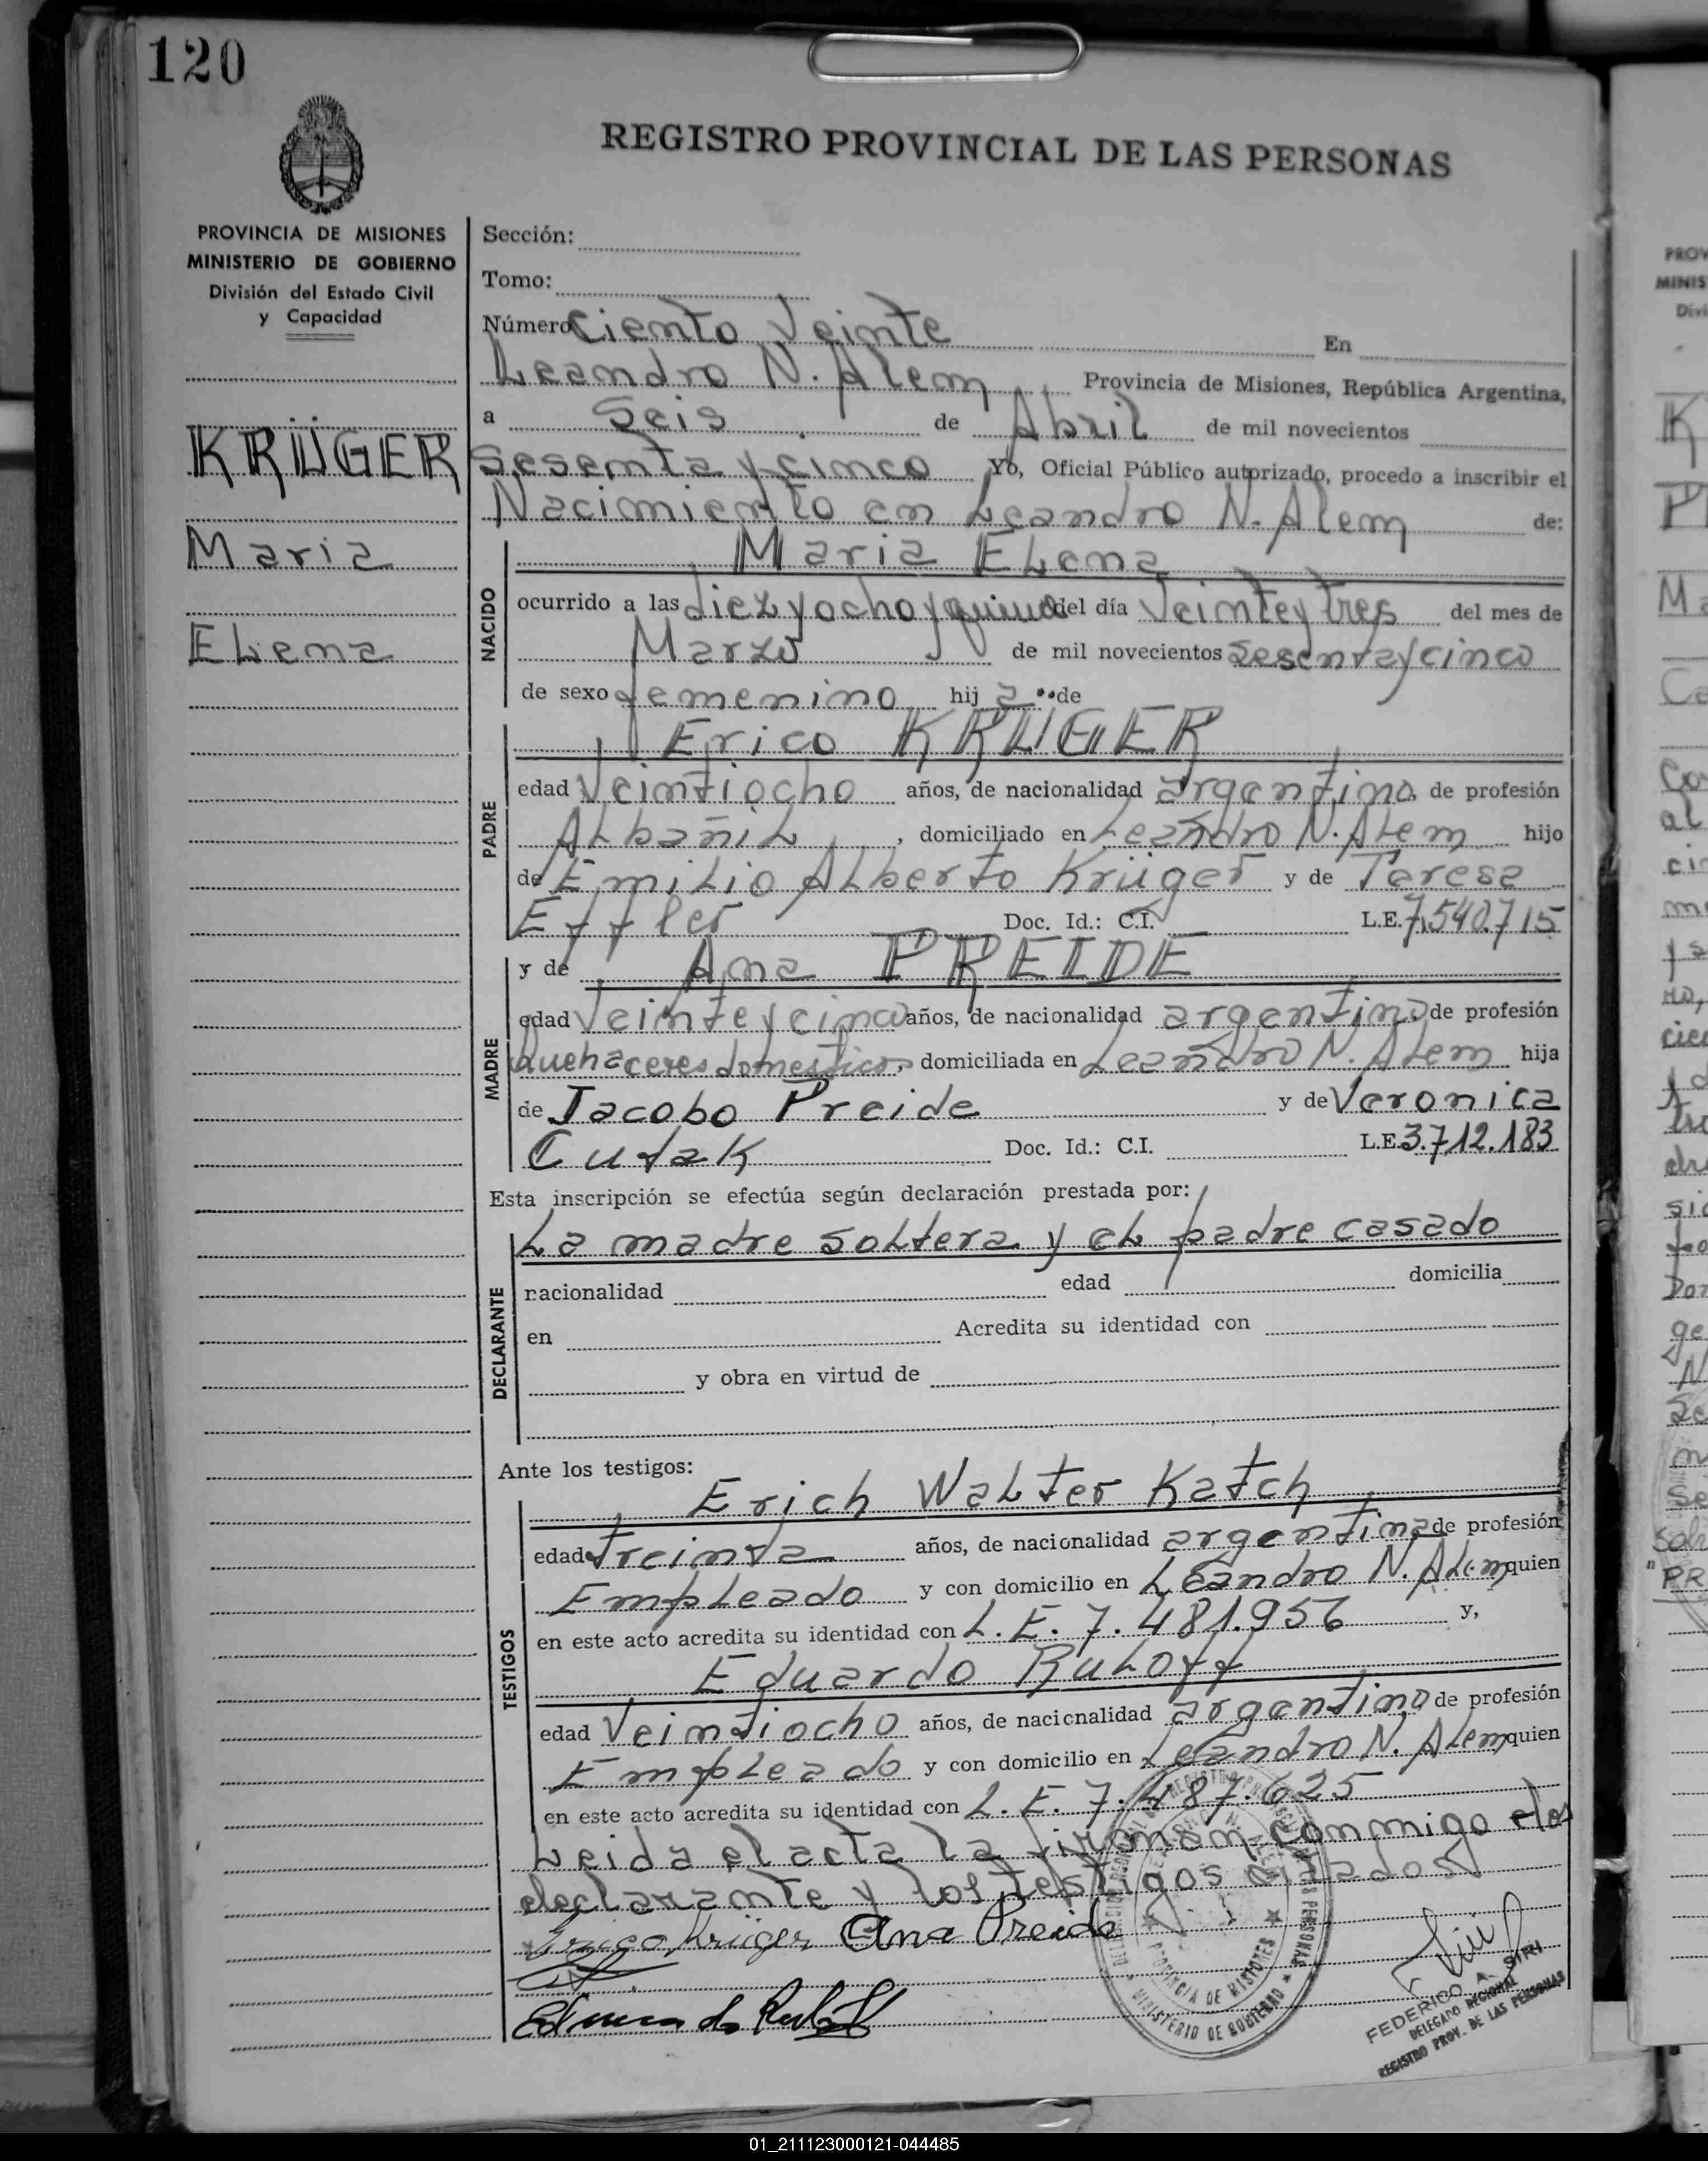 120
REGISTRO PROVINCIAL DE LAS PERSONAS
PROVINCIA DE MISIONES
MINISTERIO DE GOBIERNO
División del Estado Civil
y Capacidad
KRÜGER
Maria
Elena
Sección:
Tomo:
Número Ciento Veinte En
Leandro N. Alem Provincia de Misiones, República Argentina,
a Seis de Abril de mil novecientos
Sesenta y cinco Yo, Oficial Público autorizado, procedo a inscribir el
Nacimiento en Leandro N. Alem de:
NACIDO
Maria Elena
ocurrido a las diez y ocho y quince del día Veinte y tres del mes de
Marzo de mil novecientos Sesenta y cinco
de sexo femenino hij a de
PADRE
Erico KRÜGER
edad Veintiocho años, de nacionalidad argentino, de profesión
Albañil, domiciliado en Leandro N. Alem hijo
de Emilio Alberto Krüger y de Teresa
Effler Doc. Id.: C.I. L.E. 7.540.715
MADRE
y de Ana PREIDE
edad Veinte y cinco años, de nacionalidad argentina, de profesión
Quehaceres domesticos, domiciliada en Leandro N. Alem hija
de Jacobo Preide y de Veronica
Cutak Doc. Id.: C.I. L.E. 3.712.183
Esta inscripción se efectúa según declaración prestada por:
DECLARANTE
La madre soltera y el padre casado
nacionalidad edad domicilia
en Acredita su identidad con
y obra en virtud de
Ante los testigos:
TESTIGOS
Erich Walter Katch
edad treinta años, de nacionalidad argentina de profesión
Empleado y con domicilio en Leandro N. Alem quien
en este acto acredita su identidad con L.E. 7.481.956 y,
Eduardo Ruloff
edad Veintiocho años, de nacionalidad argentino de profesión
Empleado y con domicilio en Leandro N. Alem quien
en este acto acredita su identidad con L.E. 7.487.625
Leida el acta la firman conmigo los
declarante y los testigos citados
Krüger Ana Preide
PROVINCIA DE MISIONES
MINISTERIO DE GOBIERNO
FEDERICO A. SIRI
DELEGADO REGIONAL
REGISTRO PROV. DE LAS PERSONAS
01_211123000121-044485